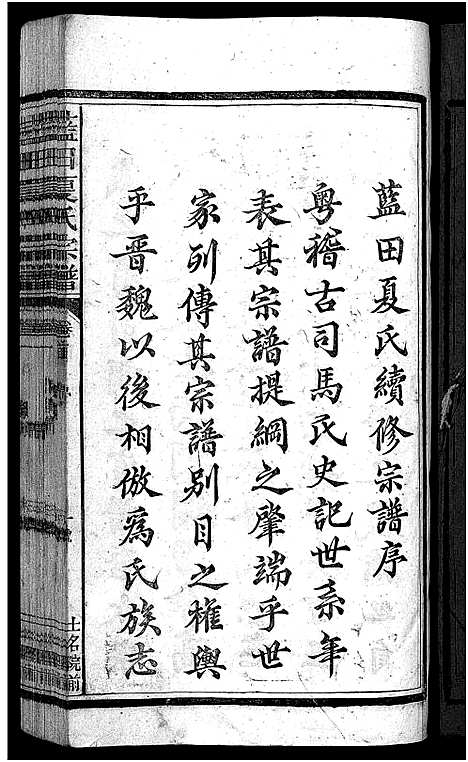 藍田夏氏續修宗譜序
粵稽古司馬氏史記世系年
表其宗譜提綱之肇端乎世
家列傳其宗譜别目之權輿
乎晋魏以後相倣為氏族志
藍田夏氏宗譜
卷首
土名院前